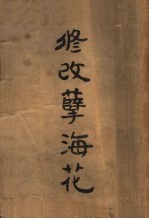 修改孽海花